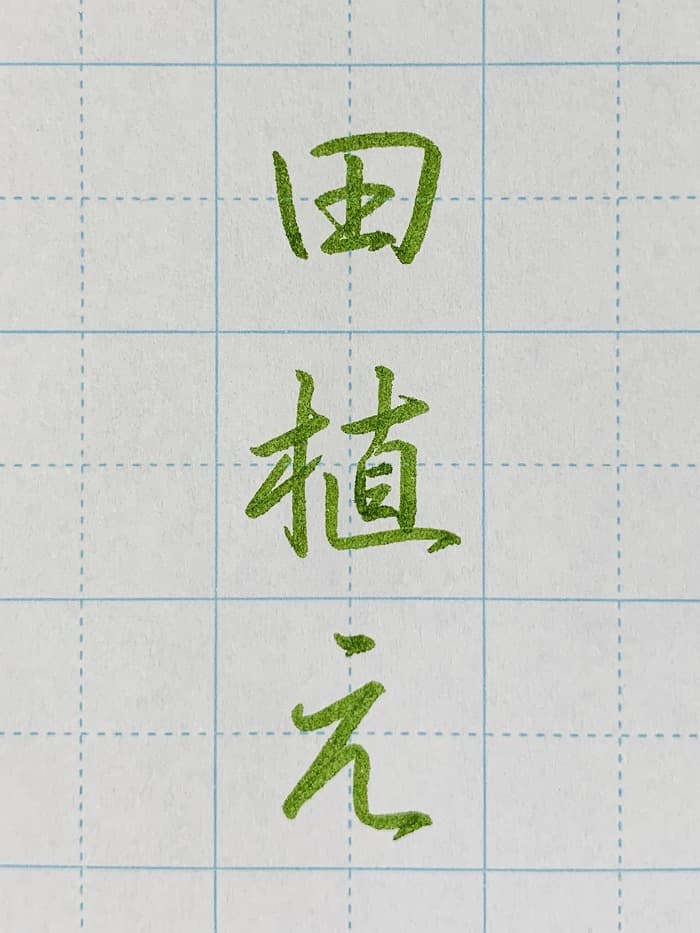 田植え